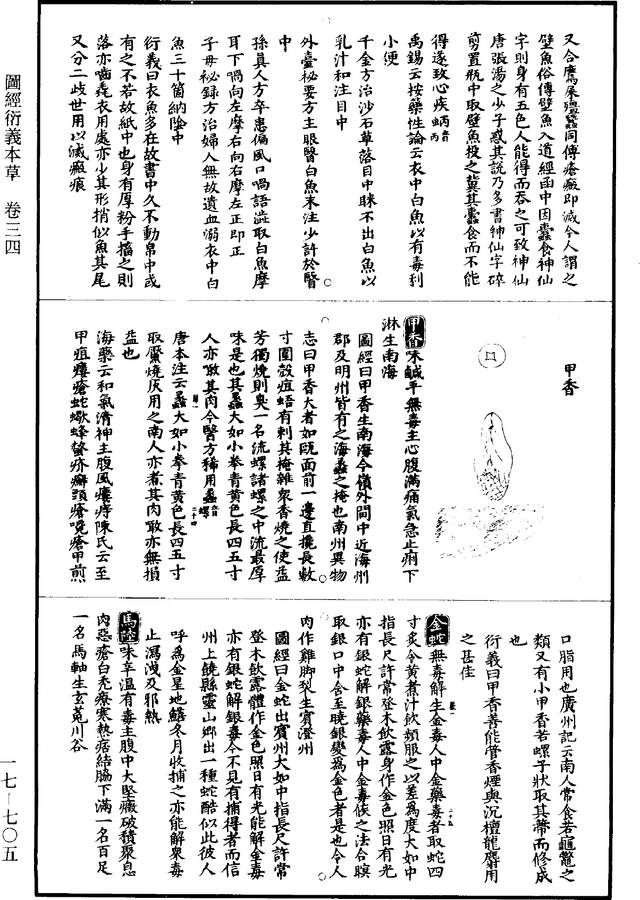 圖經衍義本草　卷三四
又合鷹屎殭蠶同傅瘡瘢即滅今人謂之
壁魚俗傳壁魚入道經函中因蠹食神仙
字則身有五色人能得而吞之可致神仙
唐張湯之少子惑其說乃多書神仙字碎
剪置瓶中取壁魚投之冀其蠹食而不能
得遂致心疾音丙
禹錫云按藥性論云衣中白魚以有毒利
小便
千金方治沙石草落目中眯不出白魚以
乳汁和注目中
外臺祕要方主眼瞖白魚末注少許於瞖
中
孫真人方卒患偏風口喎語澁取白魚摩
耳下喎向左摩右向右摩左正即正
子母祕録方治婦人無故遺血溺衣中白
魚三十箇納陰中
衍義曰衣魚多在故書中久不動帛中或
有之不若故紙中也身有厚粉手搐之則
落亦嚙毳衣用處亦少其形稍似魚其尾
又分二歧世用以滅瘢痕
甲香
甲香味鹹平無毒主心腹滿痛氣急止痢下
淋生南海
圖經曰甲香生南海今嶺外閩中近海州
郡及明州皆有之海蠡之掩也南州異物
志曰甲香大者如甌面前一邊直攙長數
寸圍殼岨峿有刺其掩雜衆香燒之使益
芳獨燒則臭一名流螺諸螺之中流最厚
味是也其蠡大如小拳青黄色長四五寸
人亦啖其肉今醫方稀用蠡音螺
唐本注云蠡大如小拳青黄色長四五寸
取黶燒灰用之南人亦煮其肉啖亦無損
益也
海藥云和氣清神主腹風瘻痔陳氏云至
甲疽瘻瘡蛇蠍蜂螫疥癬頭瘡嚵瘡甲煎
口脂用也廣州記云南人常食若龜鼈之
類又有小甲香若螺子狀取其蔕而修成
也
衍義曰甲香善能管香煙與沉檀龍麝用
之甚佳
金蛇無毒解生金毒人中金藥毒者取蛇四
寸炙令黄煮汁飲頻服之以差爲度大如中
指長尺許常登木飲露身作金色照日有光
亦有銀蛇解銀藥毒人中金毒候之法合瞑
取銀口中含至曉銀變爲金色者是也令人
肉作雞脚裂生賓澄州
圖經曰金蛇出賓州大如中指長尺許常
登木飲露體作金色照日有光能解金毒
亦有銀蛇解銀毒今不見有捕得者而信
州上饒縣靈山鄉出一種蛇酷似此彼人
呼爲金星地鱔冬月收捕之亦能解衆毒
止瀉洩及邪熱
馬陸味辛温有毒主腹中大堅癥破積聚息
肉惡瘡白禿療寒熱痞結脇下滿一名百足
一名馬軸生玄菟川谷
一七—七〇五